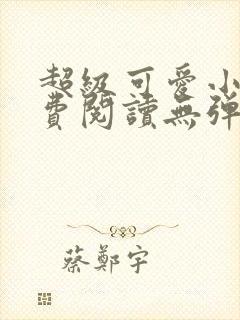 超級可愛小
費閱讀無彈
蔡鄭宇